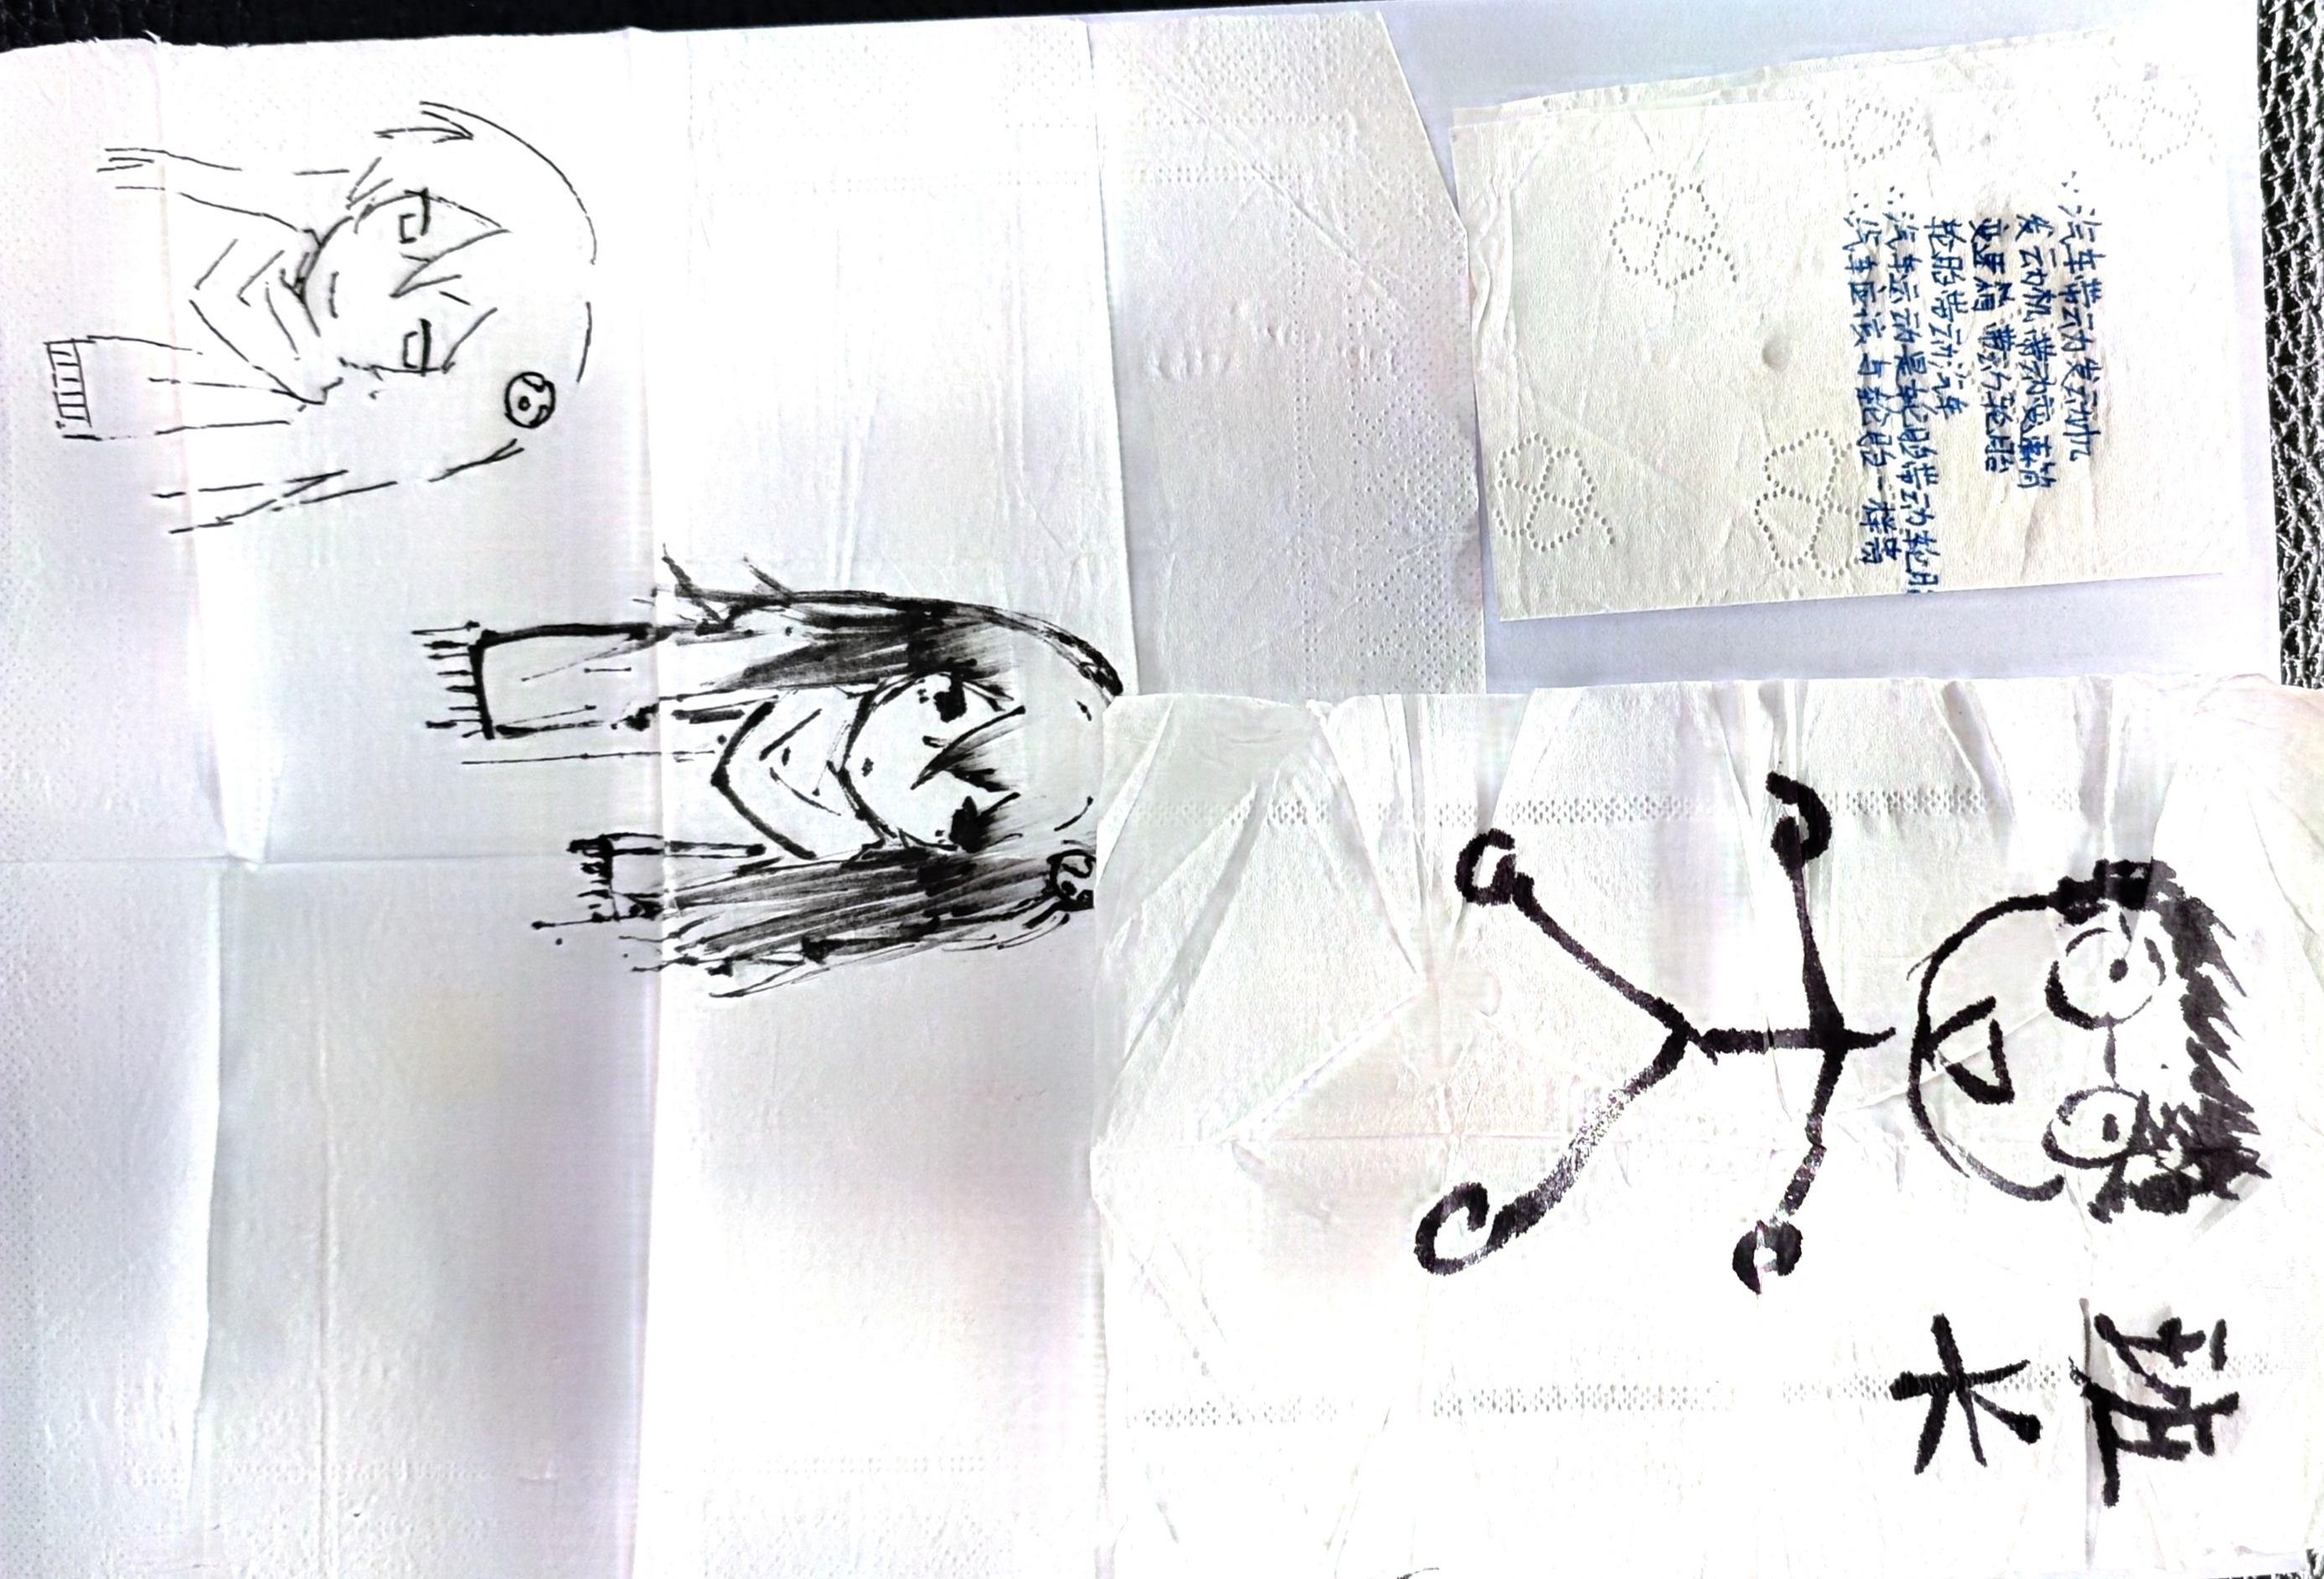 ∵汽车带动发动机
发动机带动变速箱
变速箱带动轮胎
轮胎带动汽车
∴汽车动是轮胎带动轮
∴汽车应该与轮胎一样
班
木